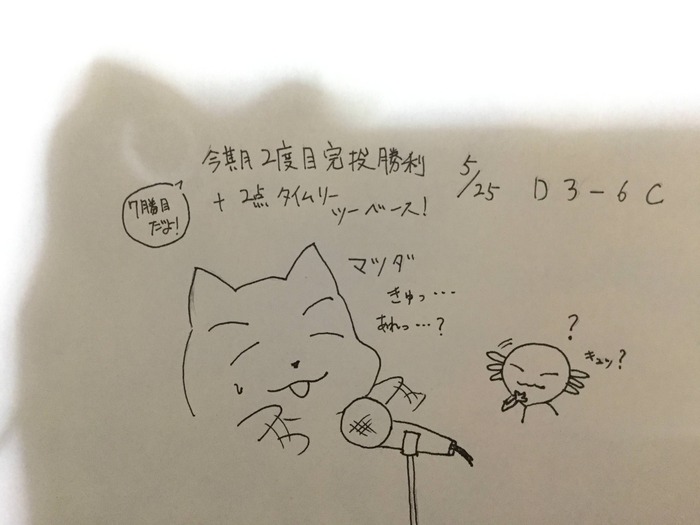 今期2度目完投勝利
+ 2点タイムリー
ツーベース!
5/25 D 3-6 C
7勝目
だよ!
マツダ
きゅっ…
あれっ…?
?
キュン?